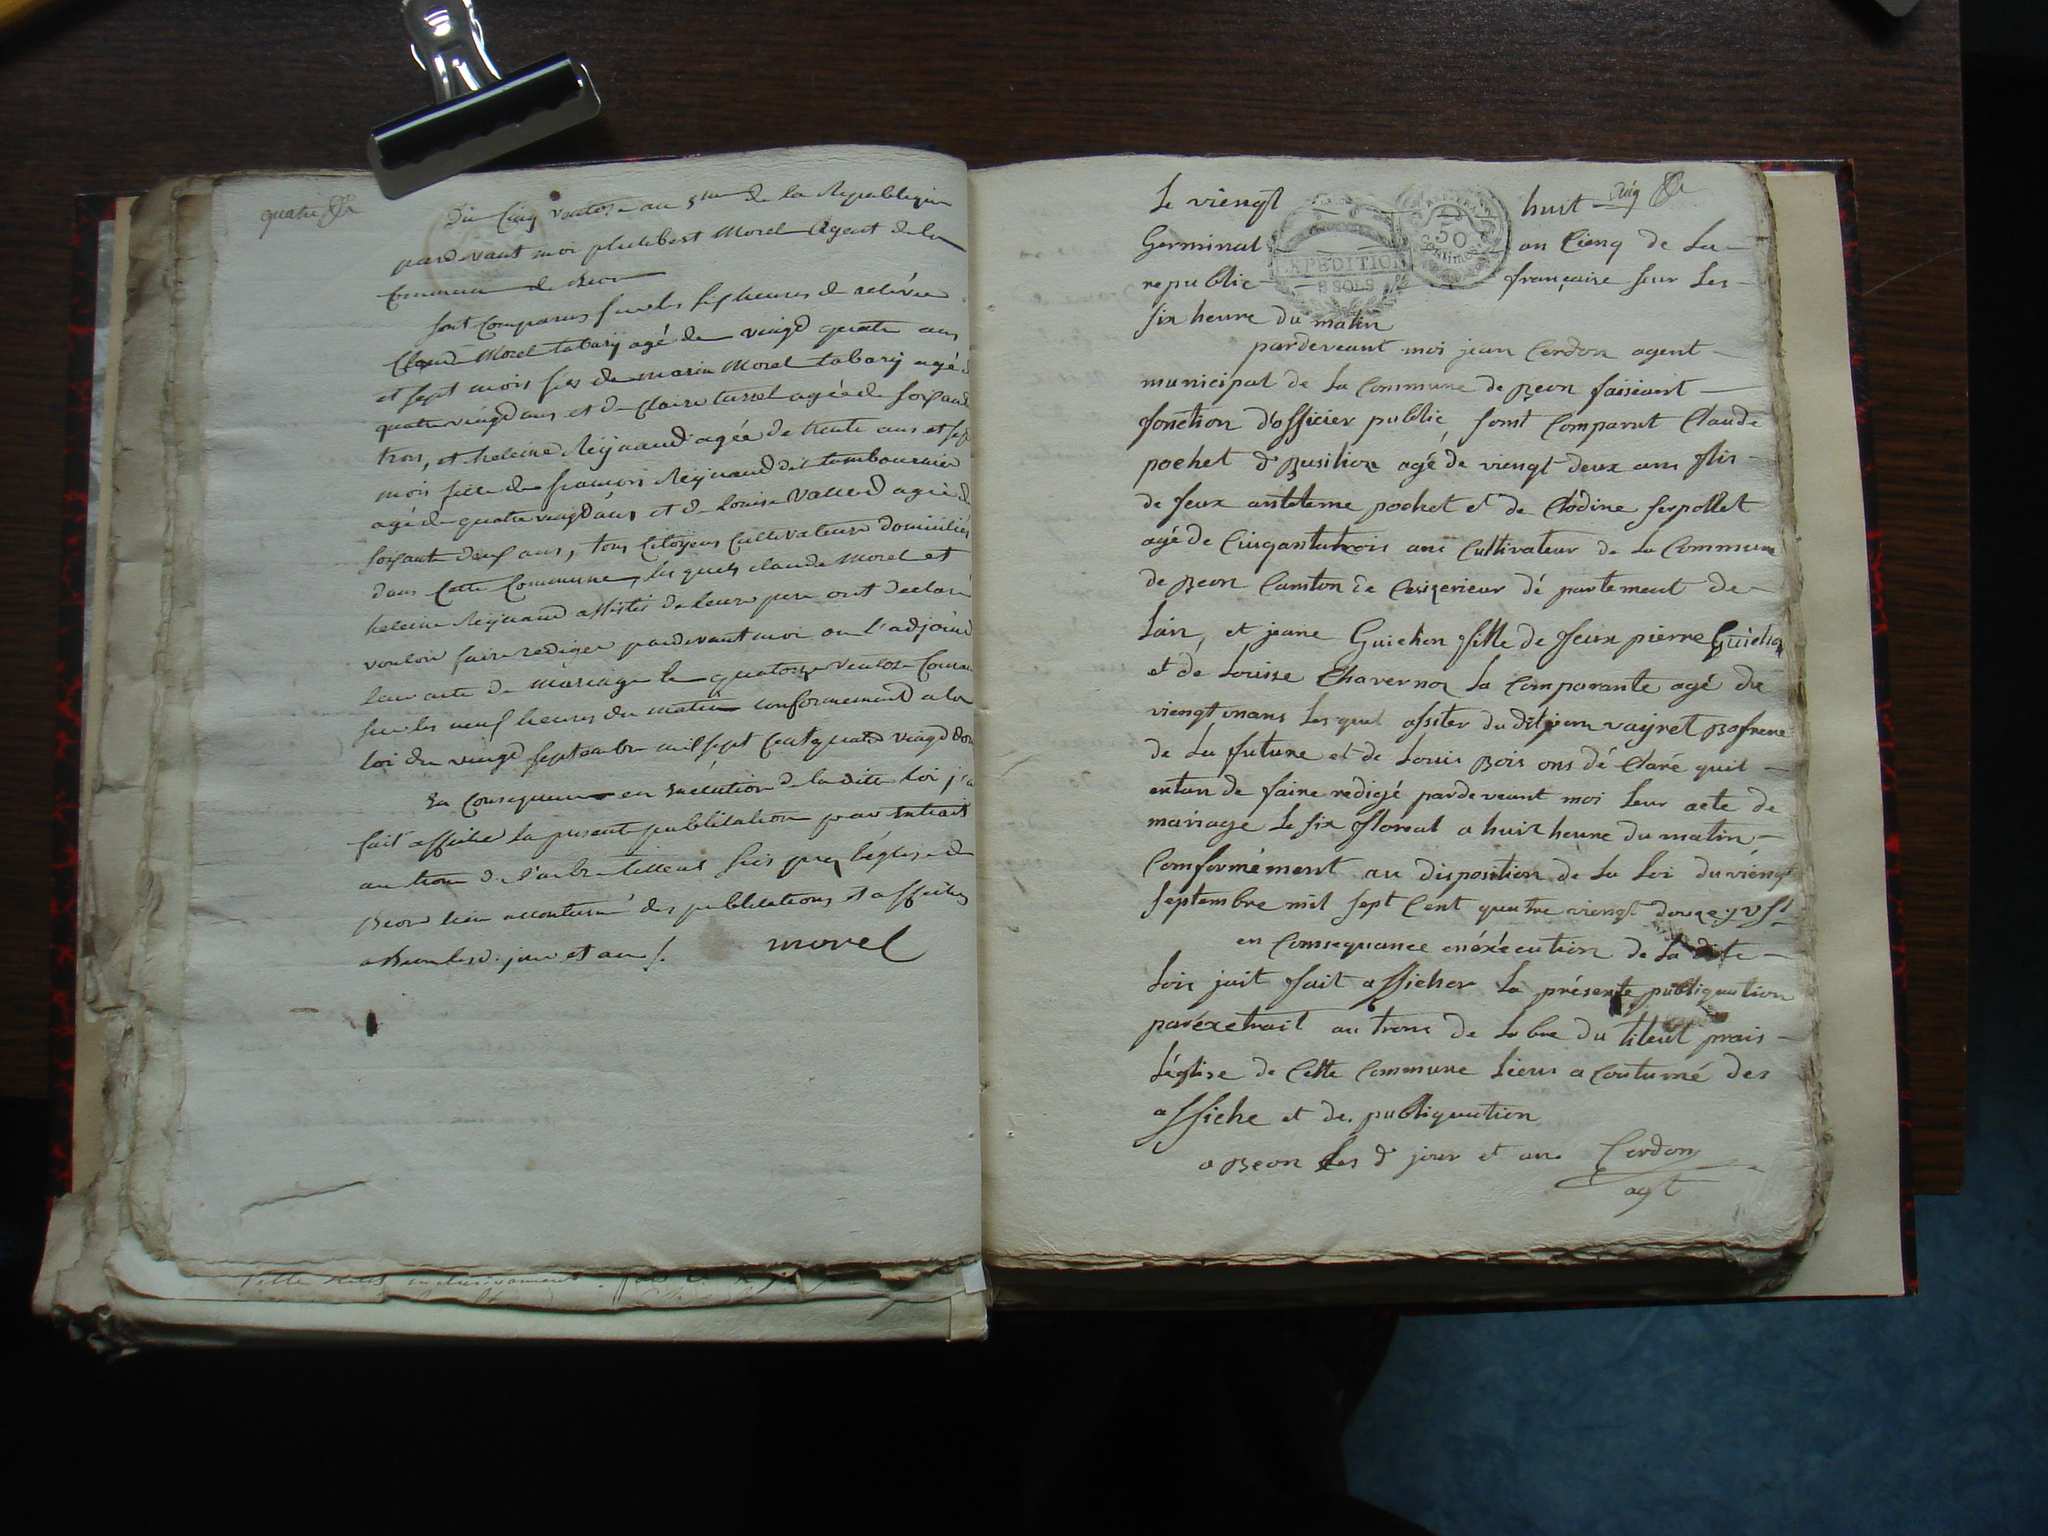 quatre
Du Cinq ventose an 5me de la Republique
pardevant moi philibert Morel Agent de la
Commune de Beon
sont comparus sur les six heures de relévée
Claude Morel tabary agé de vingt quatre ans
et sept mois fils de marin Morel tabary agé de
quatre vingt ans et de Claire turrel agée de soixante
trois, et heleine Reynaud agée de trente ans et sept
mois fille de francois Reynaud dit tambournier
agé de quatre vingt ans et de Louise Vallet agée de
soixante deux ans, tous Citoyens Cultivateurs domiciliés
dans Cette Commune, les quels claude Morel et
heleine Reynaud assistés de leurs pere ont declaré
vouloir faire rediger pardevant moi ou l'adjoint
leur acte de mariage le quatorze ventose Courant
sur les neuf heures du matin conformement a la
loi du vingt septembre mil sept Cent quatre vingt douze
En Consequence en Exécution de la dite loi j'ai
fait afficher la presente publication par extrait
au tronc de l'arbre tilleul sis près l'église de
Beon lieu accoutumé des publications et affiches
a Beon lesd. jour et an /.
morel
Le viengt huit
cinq
Germinal an Cienq de La
republic française sur Les
EXPEDITION
8 SOLS
50
CENTIMES
six heure du matin
pardeveant moi jean Cerdon agent
municipal de La Commune de Beon faisieant
fonction d'officier public, sont Comparut Claude
pochet d'Busilion agé de viengt deux ans fils
de feux anteleme pochet et de Clódine serpollet
agé de Ciuqantatrois ans Cultivateur de La Commune
de Beon Canton de Ceizerieur dé partement de
Lain, et jeane Guichon fille de feux pierre Guichon
et de Louisse Chavernoz La Comparante agé de
viengt unans Les quel assiter du dit jean vayret Bofrere
de La future et de Louis Bois ons dé Claré quil
entan de faire redigé pardeveant moi Leur acte de
mariage Le six floreal a huit heure du matin
Comformément au disposition de La Loi du viengt
septembre mil sept Cent quatre viengt douze
en Comsequance enéxécution de La dite
Loix jait fait afficher La présente publiquation
paréxetrait au tronc de Lobre du tileul prais
Léglise de Cette Commune Lieus a Coutumé des
affiche et de publiquation
a Beon Les d jour et an
Cerdon
agt